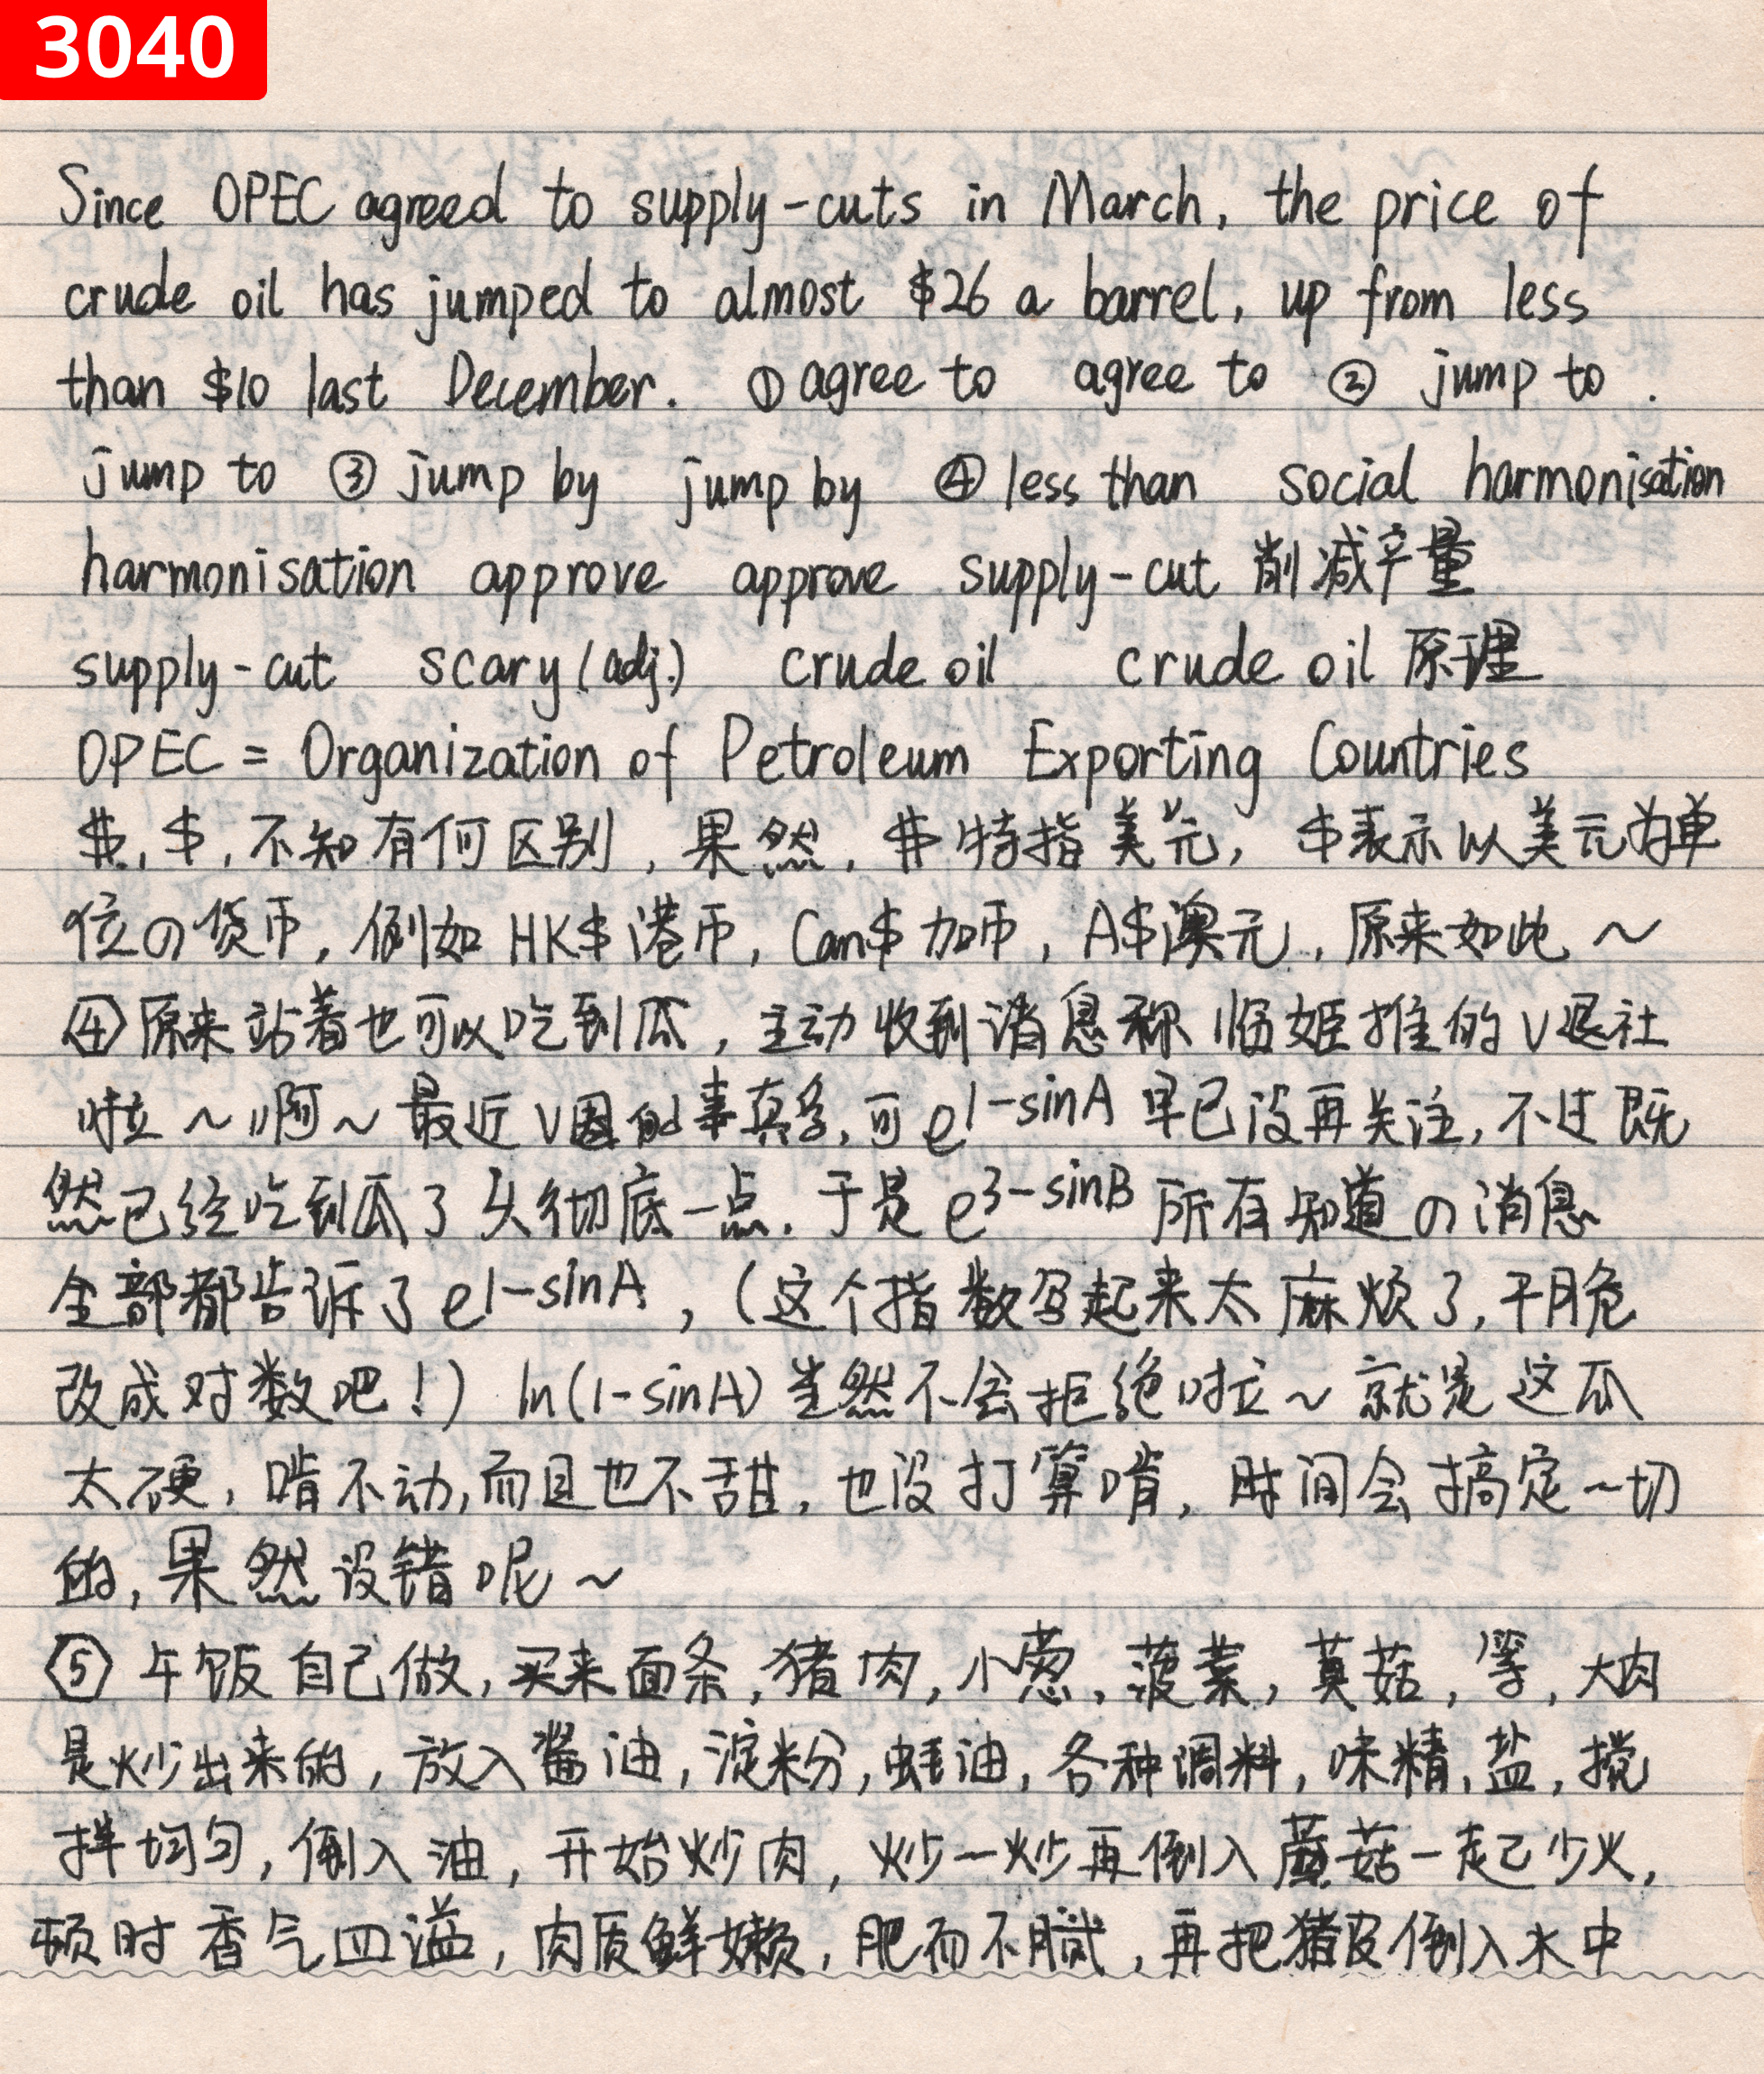 3040
Since OPEC agreed to supply-cuts in March, the price of
crude oil has jumped to almost $26 a barrel, up from less
than $10 last December. ① agree to agree to ② jump to.
jump to ③ jump by jump by ④ less than social harmonisation
harmonisation approve approve supply-cut 削减产量
supply-cut scary (adj.) crude oil crude oil 原理
OPEC = Organization of Petroleum Exporting Countries
$, $, 不知有何区别, 果然, $特指美元, $表示以美元为单
位の货币, 例如 HK$港币, Can$加币, A$澳元, 原来如此 ~
④原来站着也可以吃到瓜, 主动收到消息称临姬推的V退社
啦~啊~最近V圈的事真多, 可e^1-sinA 早已没再关注, 不过既
然已经吃到瓜了 彻底一点. 于是e^3-sinB 所有知道の消息
全部都告诉了e^1-sinA, (这个指数写起来太麻烦了, 干脆
改成对数吧!) ln(1-sinA)当然不会拒绝啦~就是这瓜
太硬, 啃不动, 而且也不甜, 也没打算啃, 时间会搞定一切
的, 果然没错呢~
⑤ 午饭自己做, 买来面条, 猪肉, 小葱, 菠菜, 蘑菇, 等, 大肉
是炒出来的, 放入酱油, 淀粉, 蚝油, 各种调料, 味精, 盐, 搅
拌均匀, 倒入油, 开始炒肉, 炒一炒再倒入蘑菇一起炒,
顿时香气四溢, 肉质鲜嫩, 肥而不腻, 再把猪皮倒入水中